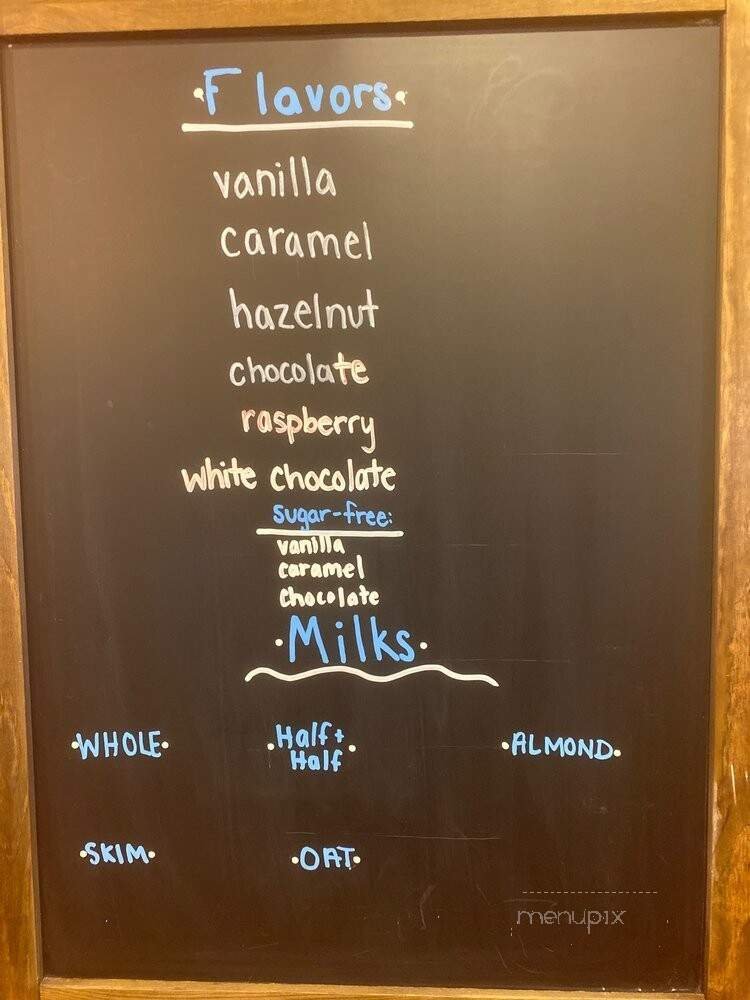 Flavors
vanilla
caramel
hazelnut
chocolate
raspberry
white chocolate
sugar-free:
vanilla
caramel
chocolate
Milks
WHOLE
Half +
Half
ALMOND
SKIM
OAT
menupix